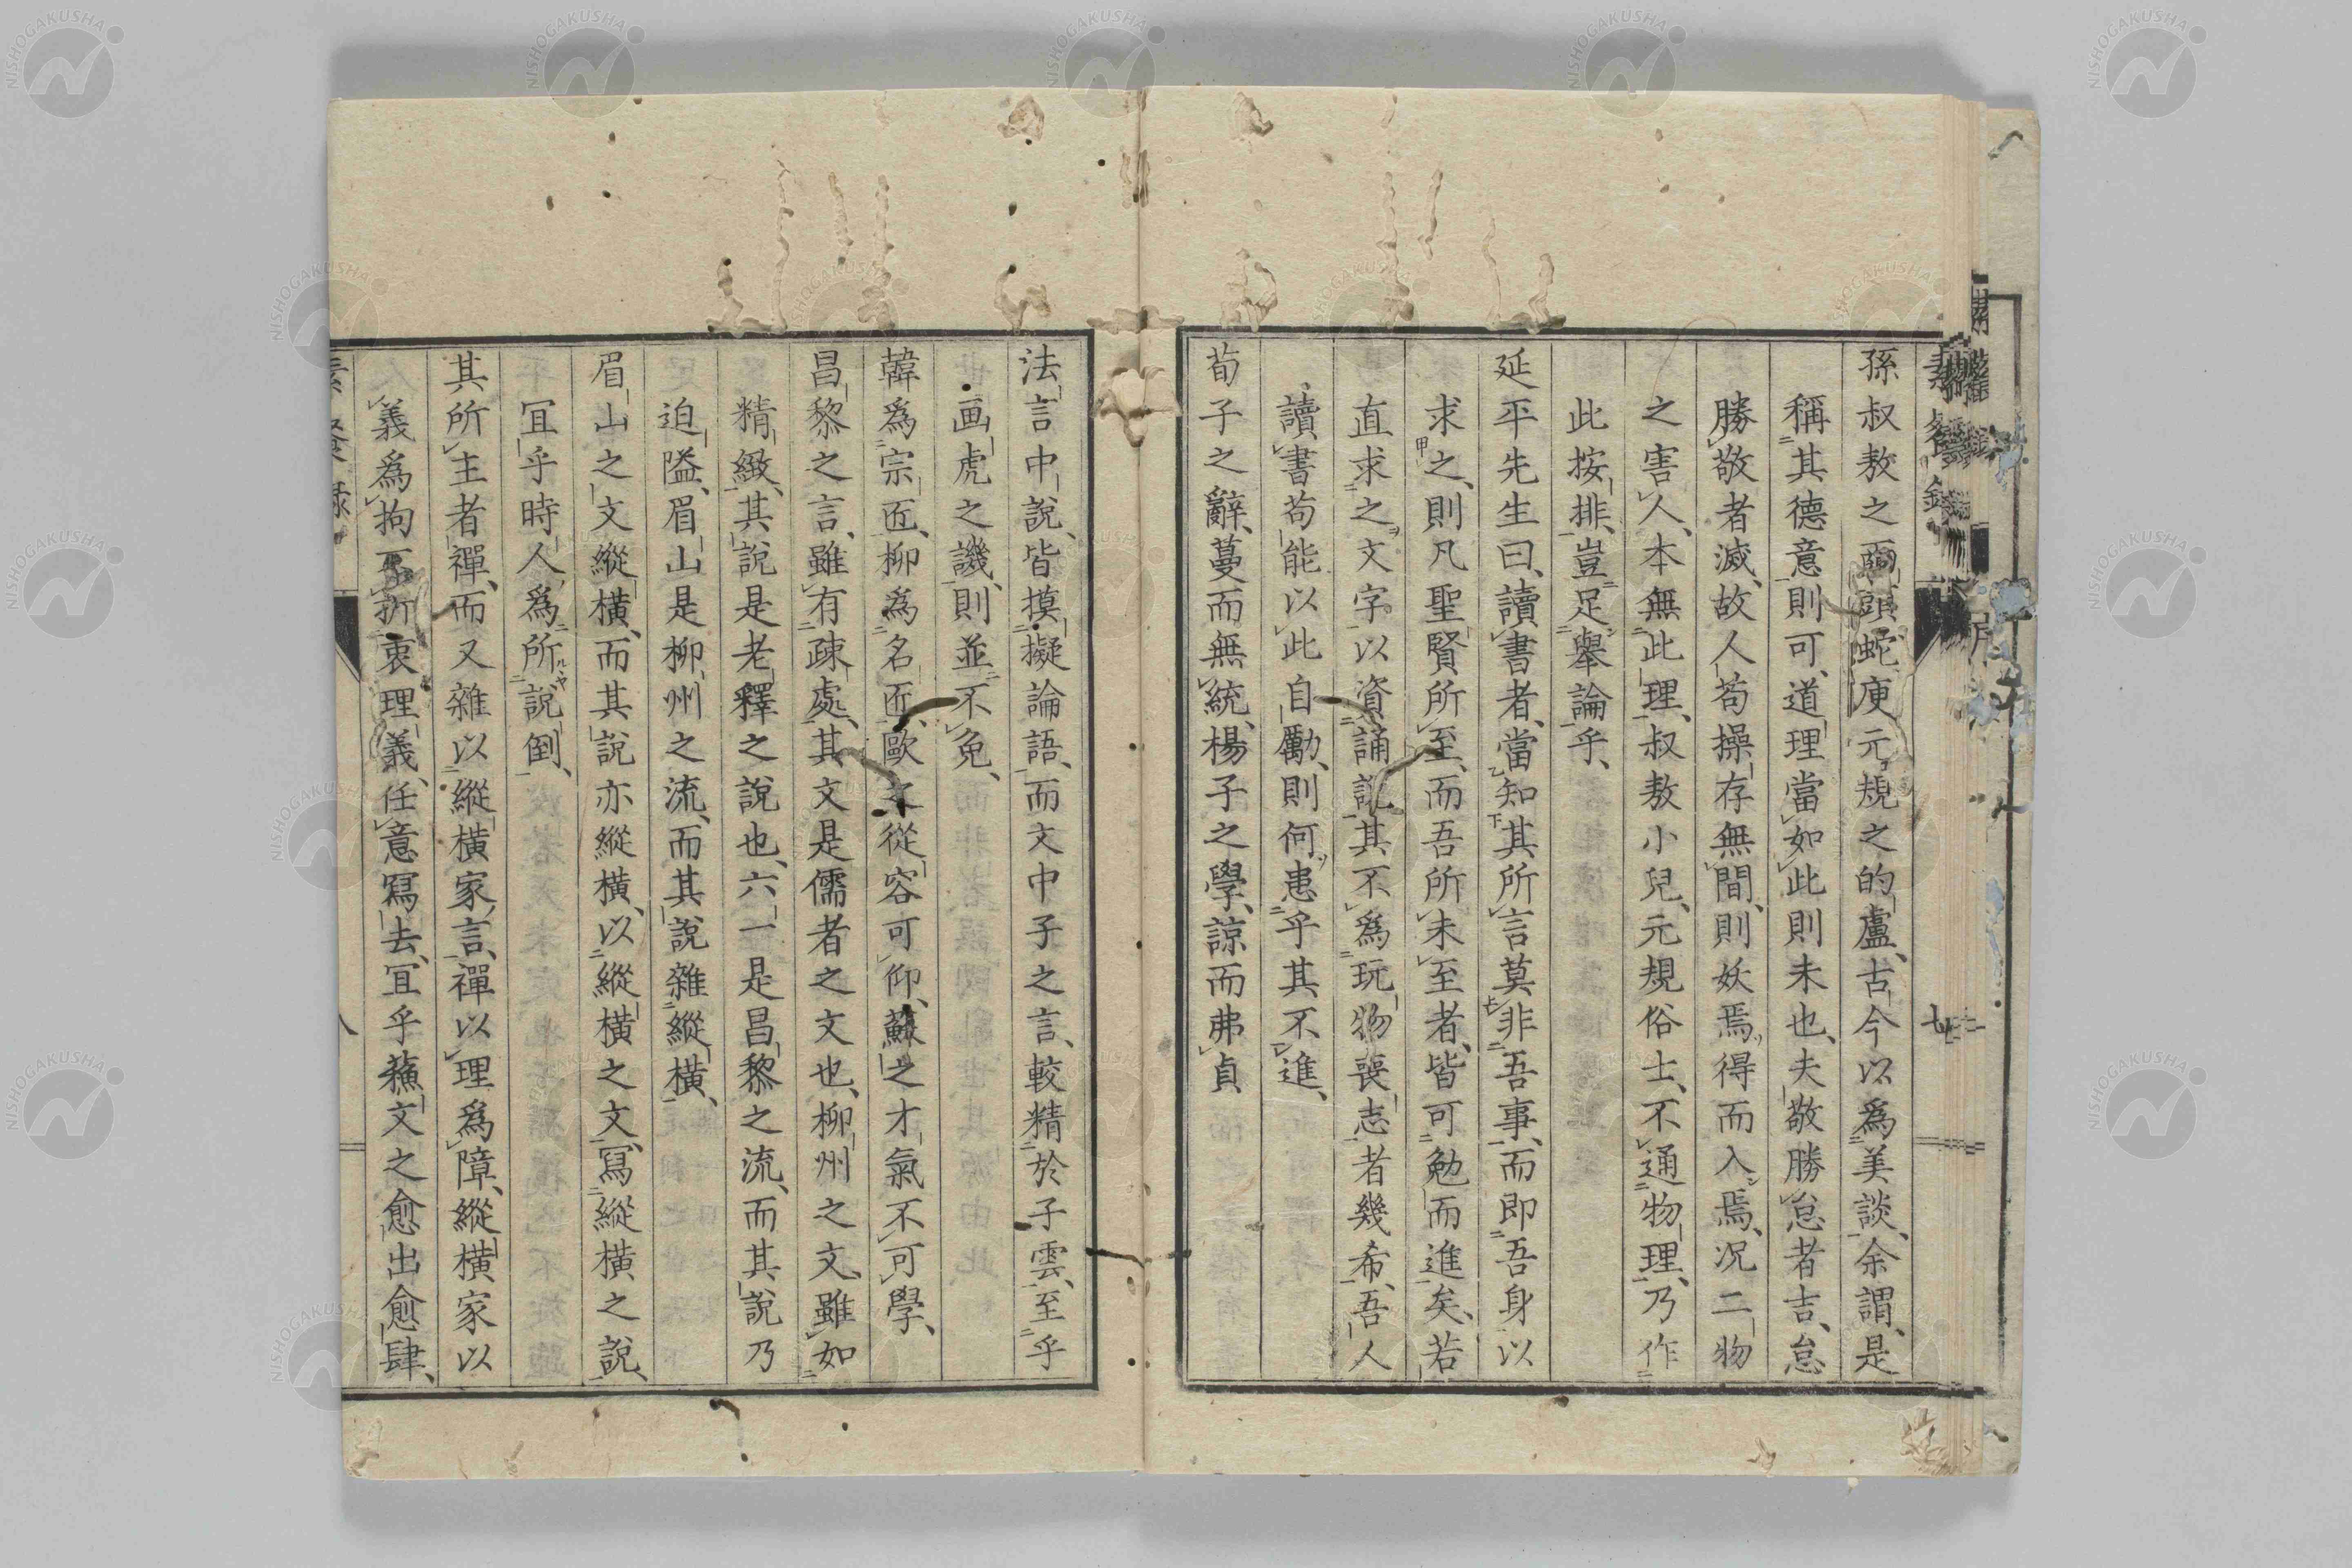 孫叔敖之兩頭蛇、庾元規之的盧、古今以爲美談、余謂、是
稱其德意則可、道理當如此則未也、夫敬勝怠者吉、怠
勝敬者滅、故人苟操存無間、則妖焉得而入焉、况二物
之害人、本無此理、叔敖小兒、元規俗士、不通物理、乃作
此按排、豈足擧論乎、
延平先生曰、讀書者、當知其所言莫非吾事、而即吾身以
求之、則凡聖賢所至、而吾所未至者、皆可勉而進矣、若
直求之文字、以資誦説、其不爲玩物喪志者幾希、吾人
讀書苟能以此自勵、則何患乎其不進、
荀子之辭、蔓而無統、楊子之學、諒而弗貞
法言中説、皆摸擬論語、而文中子之言、較精於子雲、至乎
画虎之譏、則並不免、
韓爲宗匠、柳爲名匠、歐文從容可仰、蘇之才氣不可學、
昌黎之言、雖有疎處、其文是儒者之文也、柳州之文、雖如
精緻、其説是老釋之説也、六一是昌黎之流、而其説乃
迫隘、眉山是柳州之流、而其説雜縱橫、
眉山之文縱橫、而其説亦縱橫、以縱橫之文、寫縱橫之説、
冝乎時人爲所説倒、
其所主者禪、而又雜以縱橫家言、禪以理爲障、縱橫家以
義爲拘、不折衷理義、任意寫去、冝乎蘓文之愈出愈肆、